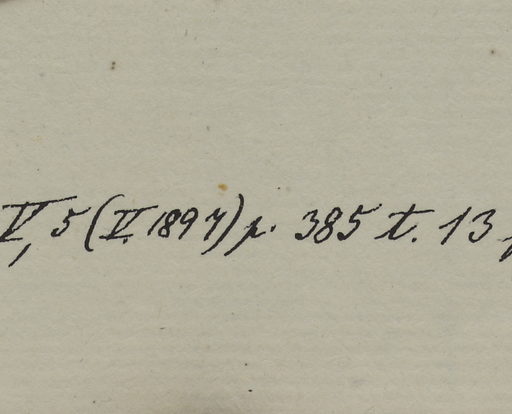 V, 5 (V. 1897) p. 385 t. 13